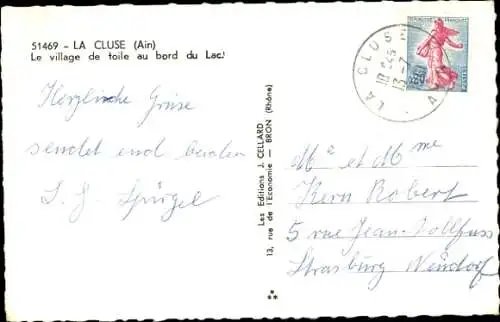 51469 - LA CLUSE (Ain)
Le village de toile au bord du Lac!
Herzliche Grüsse
sendet und
Les Editions J. CELLARD
13, rue de l'Economie - BRON (Rhône)
REPUBLIQUE FRANÇAISE
POSTES
LA CLUSE
AIN
Me et Mme
Kern Robert
5 rue Jean-Dollfuss
Strasburg Neudorf